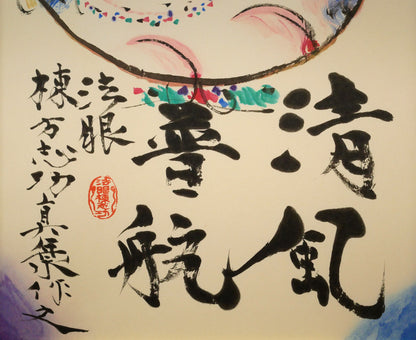 清風
普航
法眼
棟方志功真集作之